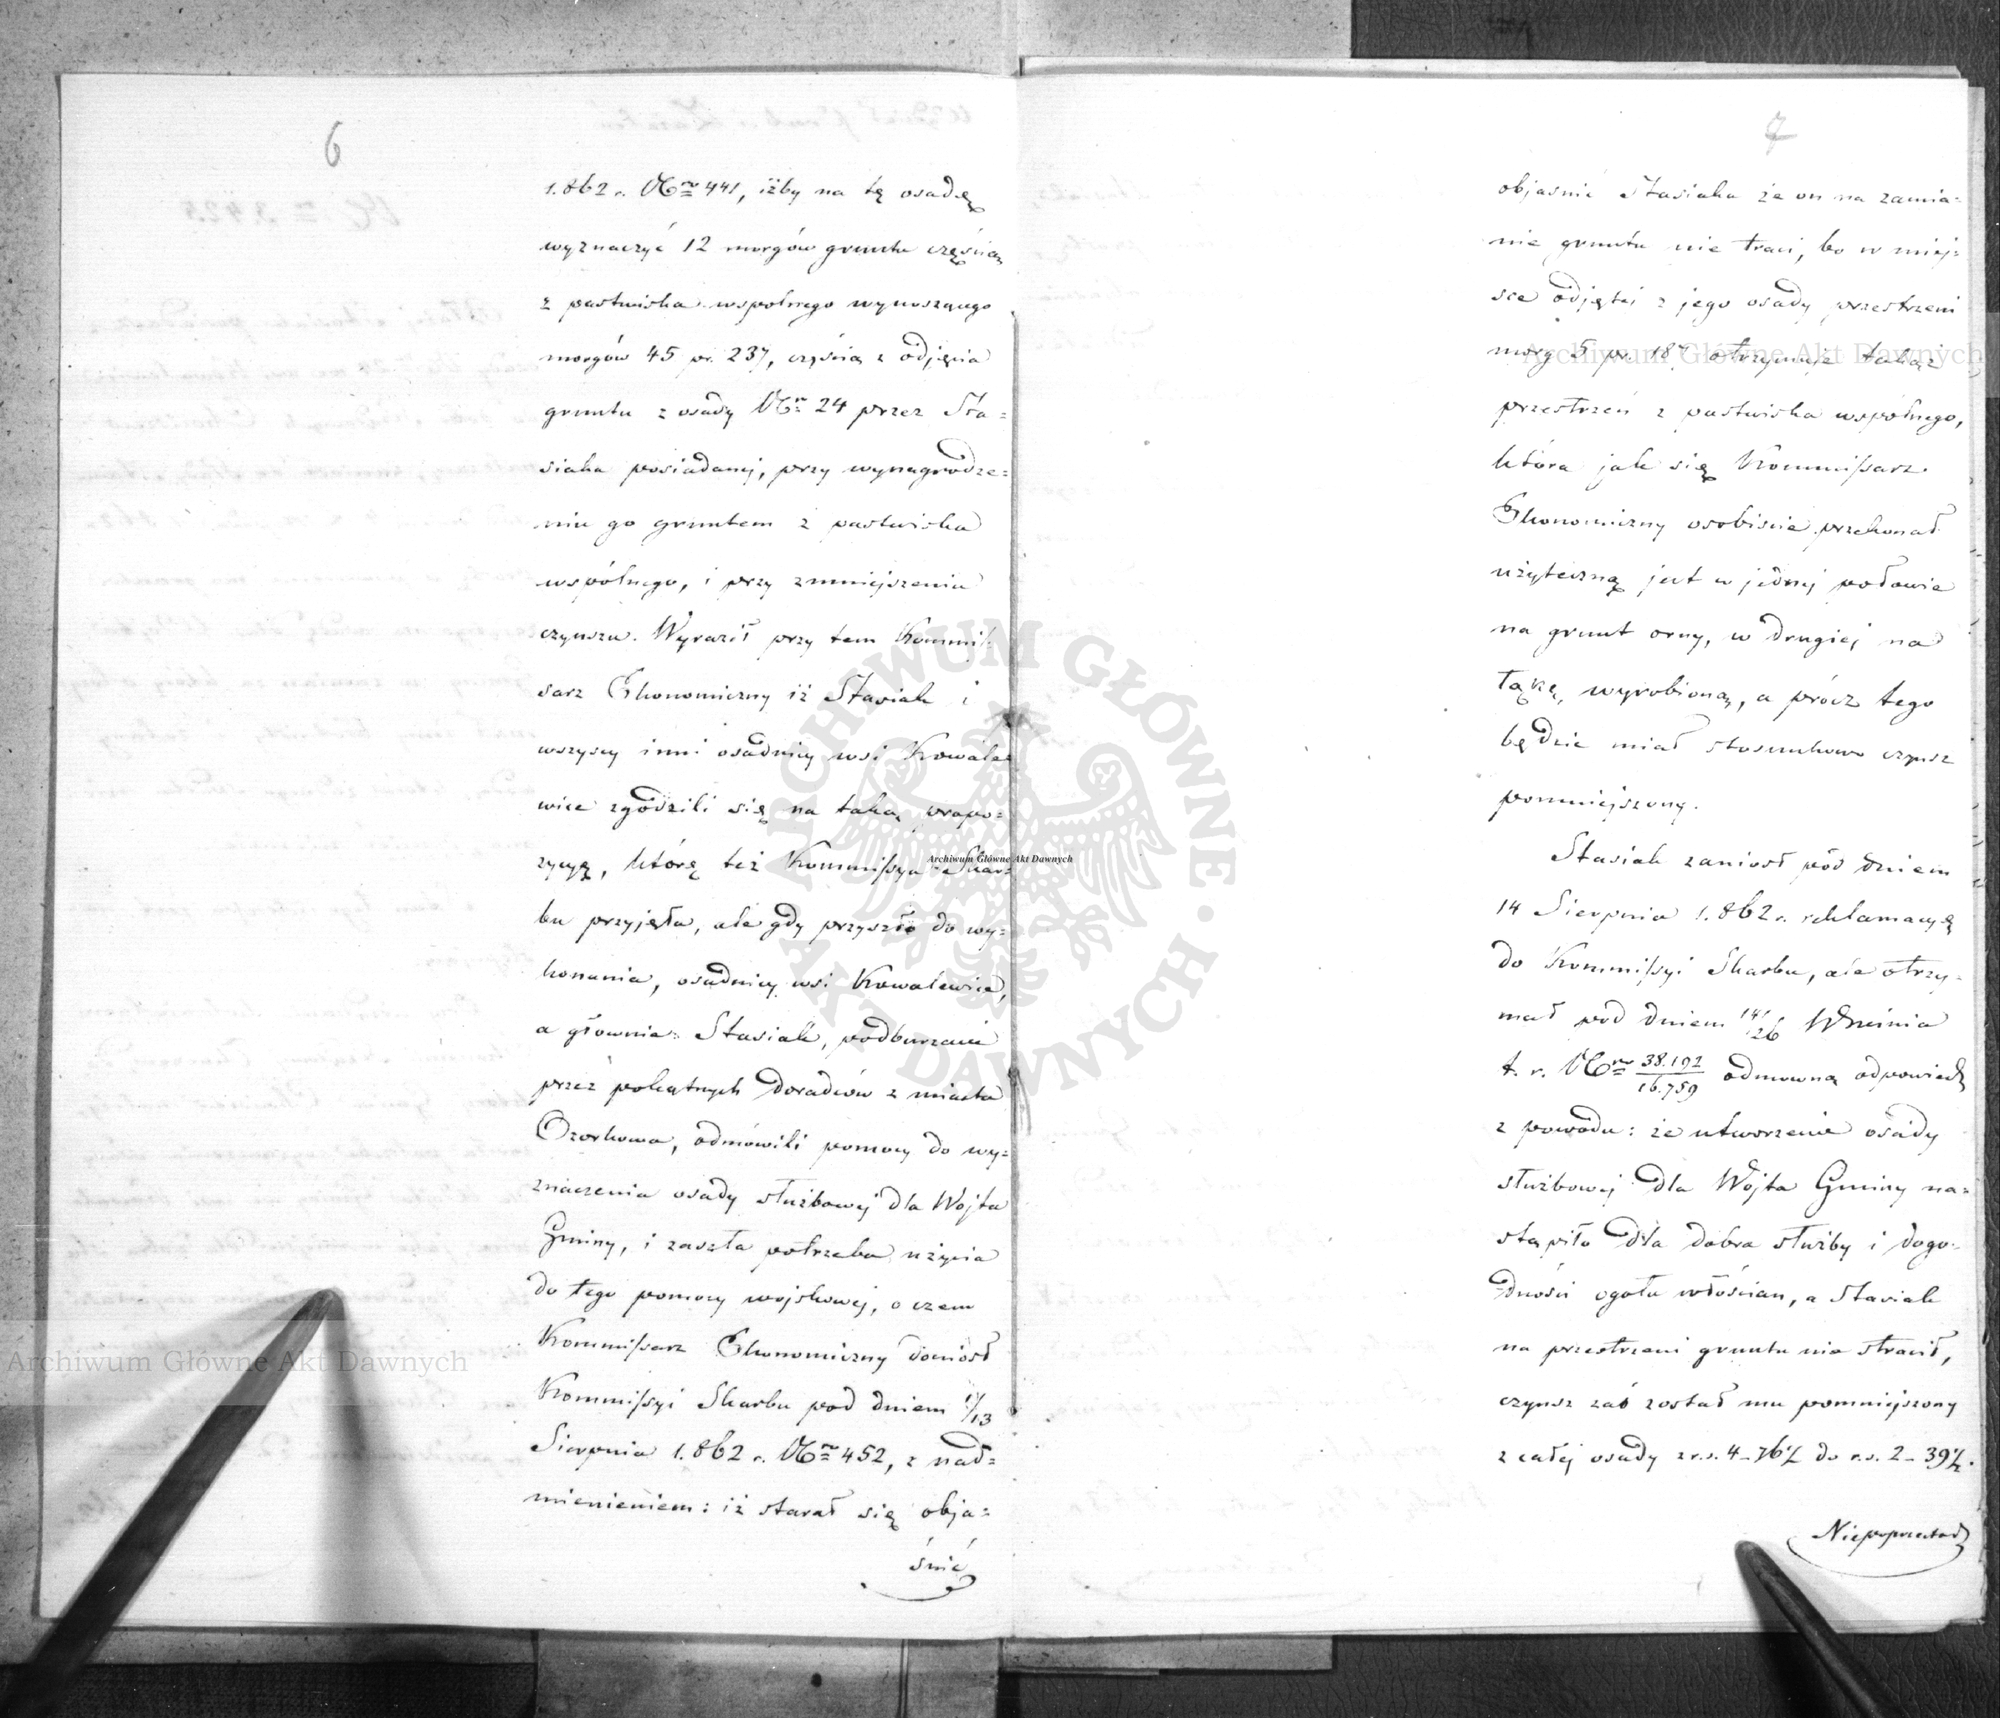 6
1.862 r. Nro 441, iżby na tę osadę
wyznaczyć 12 morgów gruntu częścią
z pastwiska wspólnego wynoszącego
morgów 45 pr. 237, częścią z odjęcia
gruntu z osady Nr 24 przez Sta=
siaka posiadanej, przy wynagrodze=
niu go gruntem z pastwiska
wspólnego, i przy zmniejszeniu
czynszu. Wyraził przy tem Kommis=
sarz Ekonomiczny iż Stasiak i
wszyscy inni osadnicy wsi Kowale=
wice zgodzili się na taką propo=
zycyę, którę też Kommissya Skar=
bu przyjęła, ale gdy przyszło do wy=
konania, osadnicy wsi Kowalewice,
a głownie Stasiak, podburzani
przez pokątnych doradców z miasta
Ozorkowa, odmówili pomocy do wy=
znaczenia osady służbowej dla Wójta
Gminy, i zaszła potrzeba użycia
do tego pomocy wojskowej, o czem
Kommissarz Ekonomiczny doniósł
Kommissyi Skarbu pod dniem 1/13
Sierpnia 1.862 r. Nro 452, z nad=
mienieniem: iż starał się obja=
śnić
7
objasnić Stasiaka że on na zamia=
nie gruntu nie traci, bo w miej=
sce odjętej z jego osady przestrzeni
morg 5 pr. 187 otrzymuje takąż
przestrzeń z pastwiska wspólnego,
która jak się Kommissarz
Ekonomiczny osobiscie przekonał
użyteczną jest w jednej połowie
na grunt orny, w drugiej na
łąkę, wyrobioną, a prócz tego
będzie miał stosunkowo czynsz
pomniejszony.
Stasiak zaniosł pod dniem
14 Sierpnia 1.862 r. reklamacyę
do Kommissyi Skarbu, ale otrzy=
mał pod dniem 14/26 Wrzśnia
t. r. Nro 38.192/16.759 odmowną odpowiedź
z powodu: że utworzenie osady
służbowej dla Wójta Gminy na=
stąpiło dla dobra służby i dogo=
dności ogołu włościan, a Stasiak
na przestrzeni gruntu nie stracił,
czynsz zaś został mu pomniejszony
z całej osady z r.s. 4_76½ do r.s. 2_39½.
Niepoprzestad
Archiwum Główne Akt Dawnych
Archiwum Główne Akt Dawnych
Archiwum Główne Akt Dawnych
ARCHIWUM GŁÓWNE AKT DAWNYCH